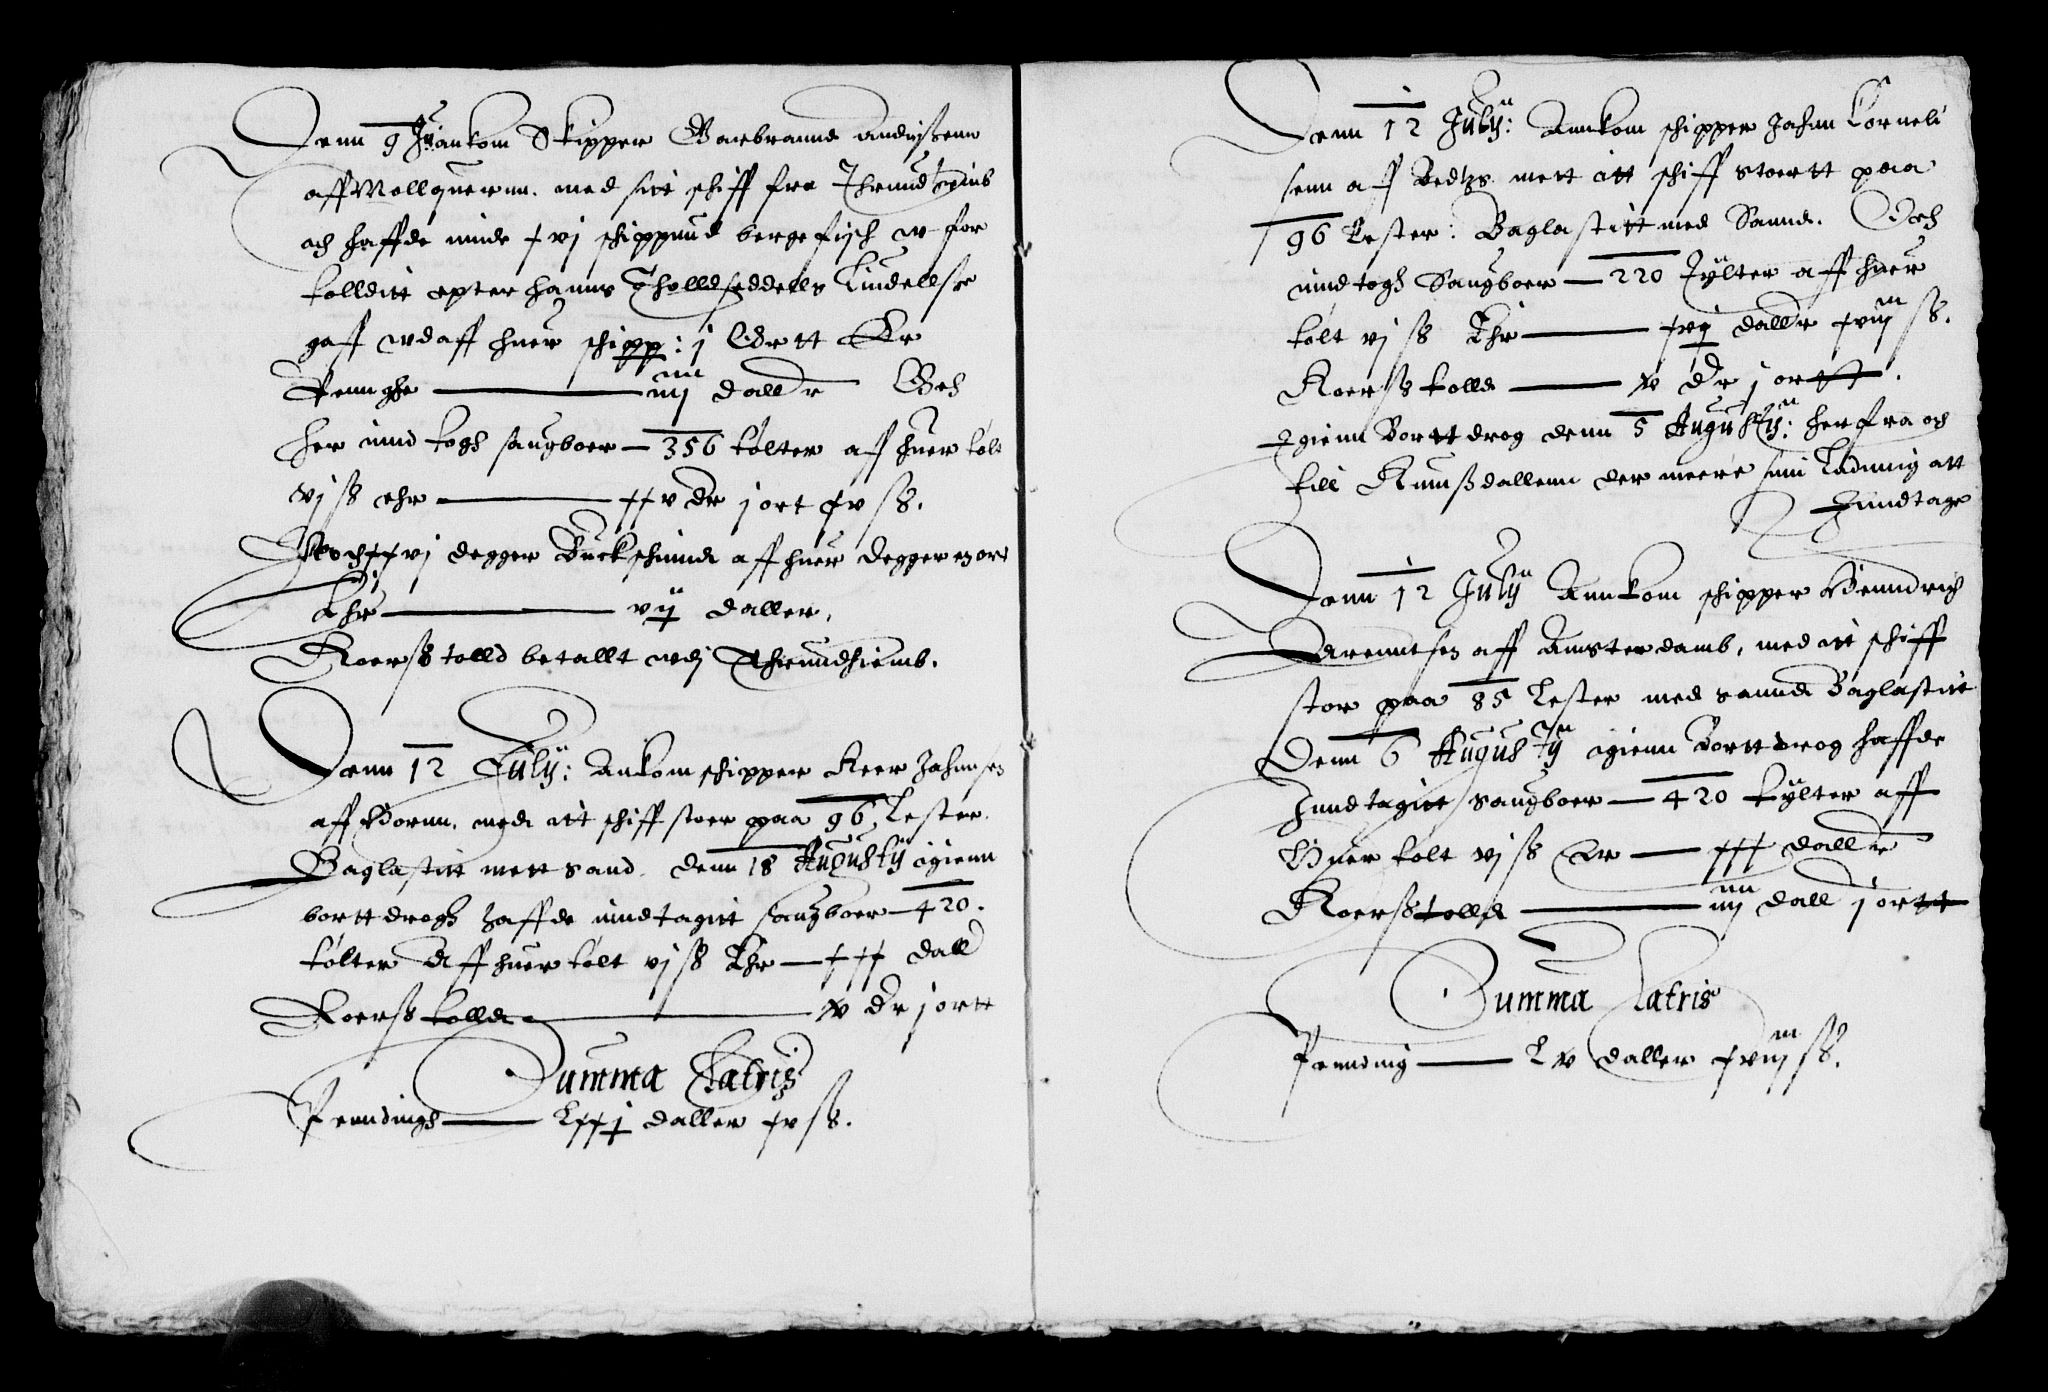 Denn 9 Jỹ ankom Skipper Garbrannd andrißenn
aff Mollquernn. med sitt schiff fra Thrund hiemb
och haffde inde xvj schippund bergefisch w-for
tollditt epter hanns Tholldseddells Liudellse
gaff wdaff huer schipp: j Ortt Er
Pennghe — iiij daller Och
her innd togh saugboer — 356 tólter aff huer tólt
vj ß ehr — xxv dr j ort xv ß.
Noch xxvj degger Buckschinnd aff huer degger j ort
Ehr — vij daller.
Roerß tolld betallt wdj Throundhiemb.
Denn 12 July: Ankom schipper Reer Jahnsen
aff Hornn. med itt schiff stoer paa 96 Lester.
Baglastitt mett sand. denn 18 Augusty igienn
bortt drogh haffde inndtagitt saugboer — 420.
tólter Aff huer tólt vj ß Ehr — xxx dall
Roerß tolld — v dr j ortt
Summa Latris
Penndingh — Lxxj daller xv ß.
Denn 12 July: Annkom schipper Jahnn Corneli
senn aff med itt schiff stoertt paa
96 Lester: Baglastitt med Sannd. Och
inndtogh Saugboer — 220 Tylter aff huer
tólt vj ß Ehr — xvj dallr xviij ß.
Roerß tolld — v dr j ortt.
Igienn Bortt drog denn 5 Augusty: herfra och
till Rumßdallenn der meere sinn Ladning att
Inndtage
Denn 12 July Annkom schipper Henndrich
Arenntsen aff Amsterdamb, med itt schiff
stor paa 85 Lester med sannd Baglastitt
Denn 6 Augusty igienn Bortt drog haffde
Inndtagitt saugboer — 420 tylter aff
Huer tolt vj ß Er — xxx dallr
Roerß tolld — iiij dall j ortt
Summa Latris
Pending — Lv daller xviij ß.